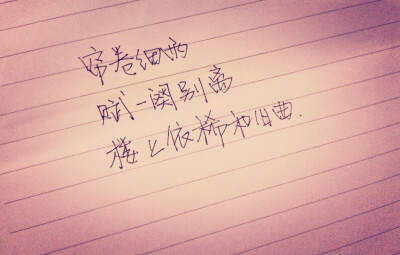 帘卷细雨
赋一阕别离
楼上依稀和旧曲.